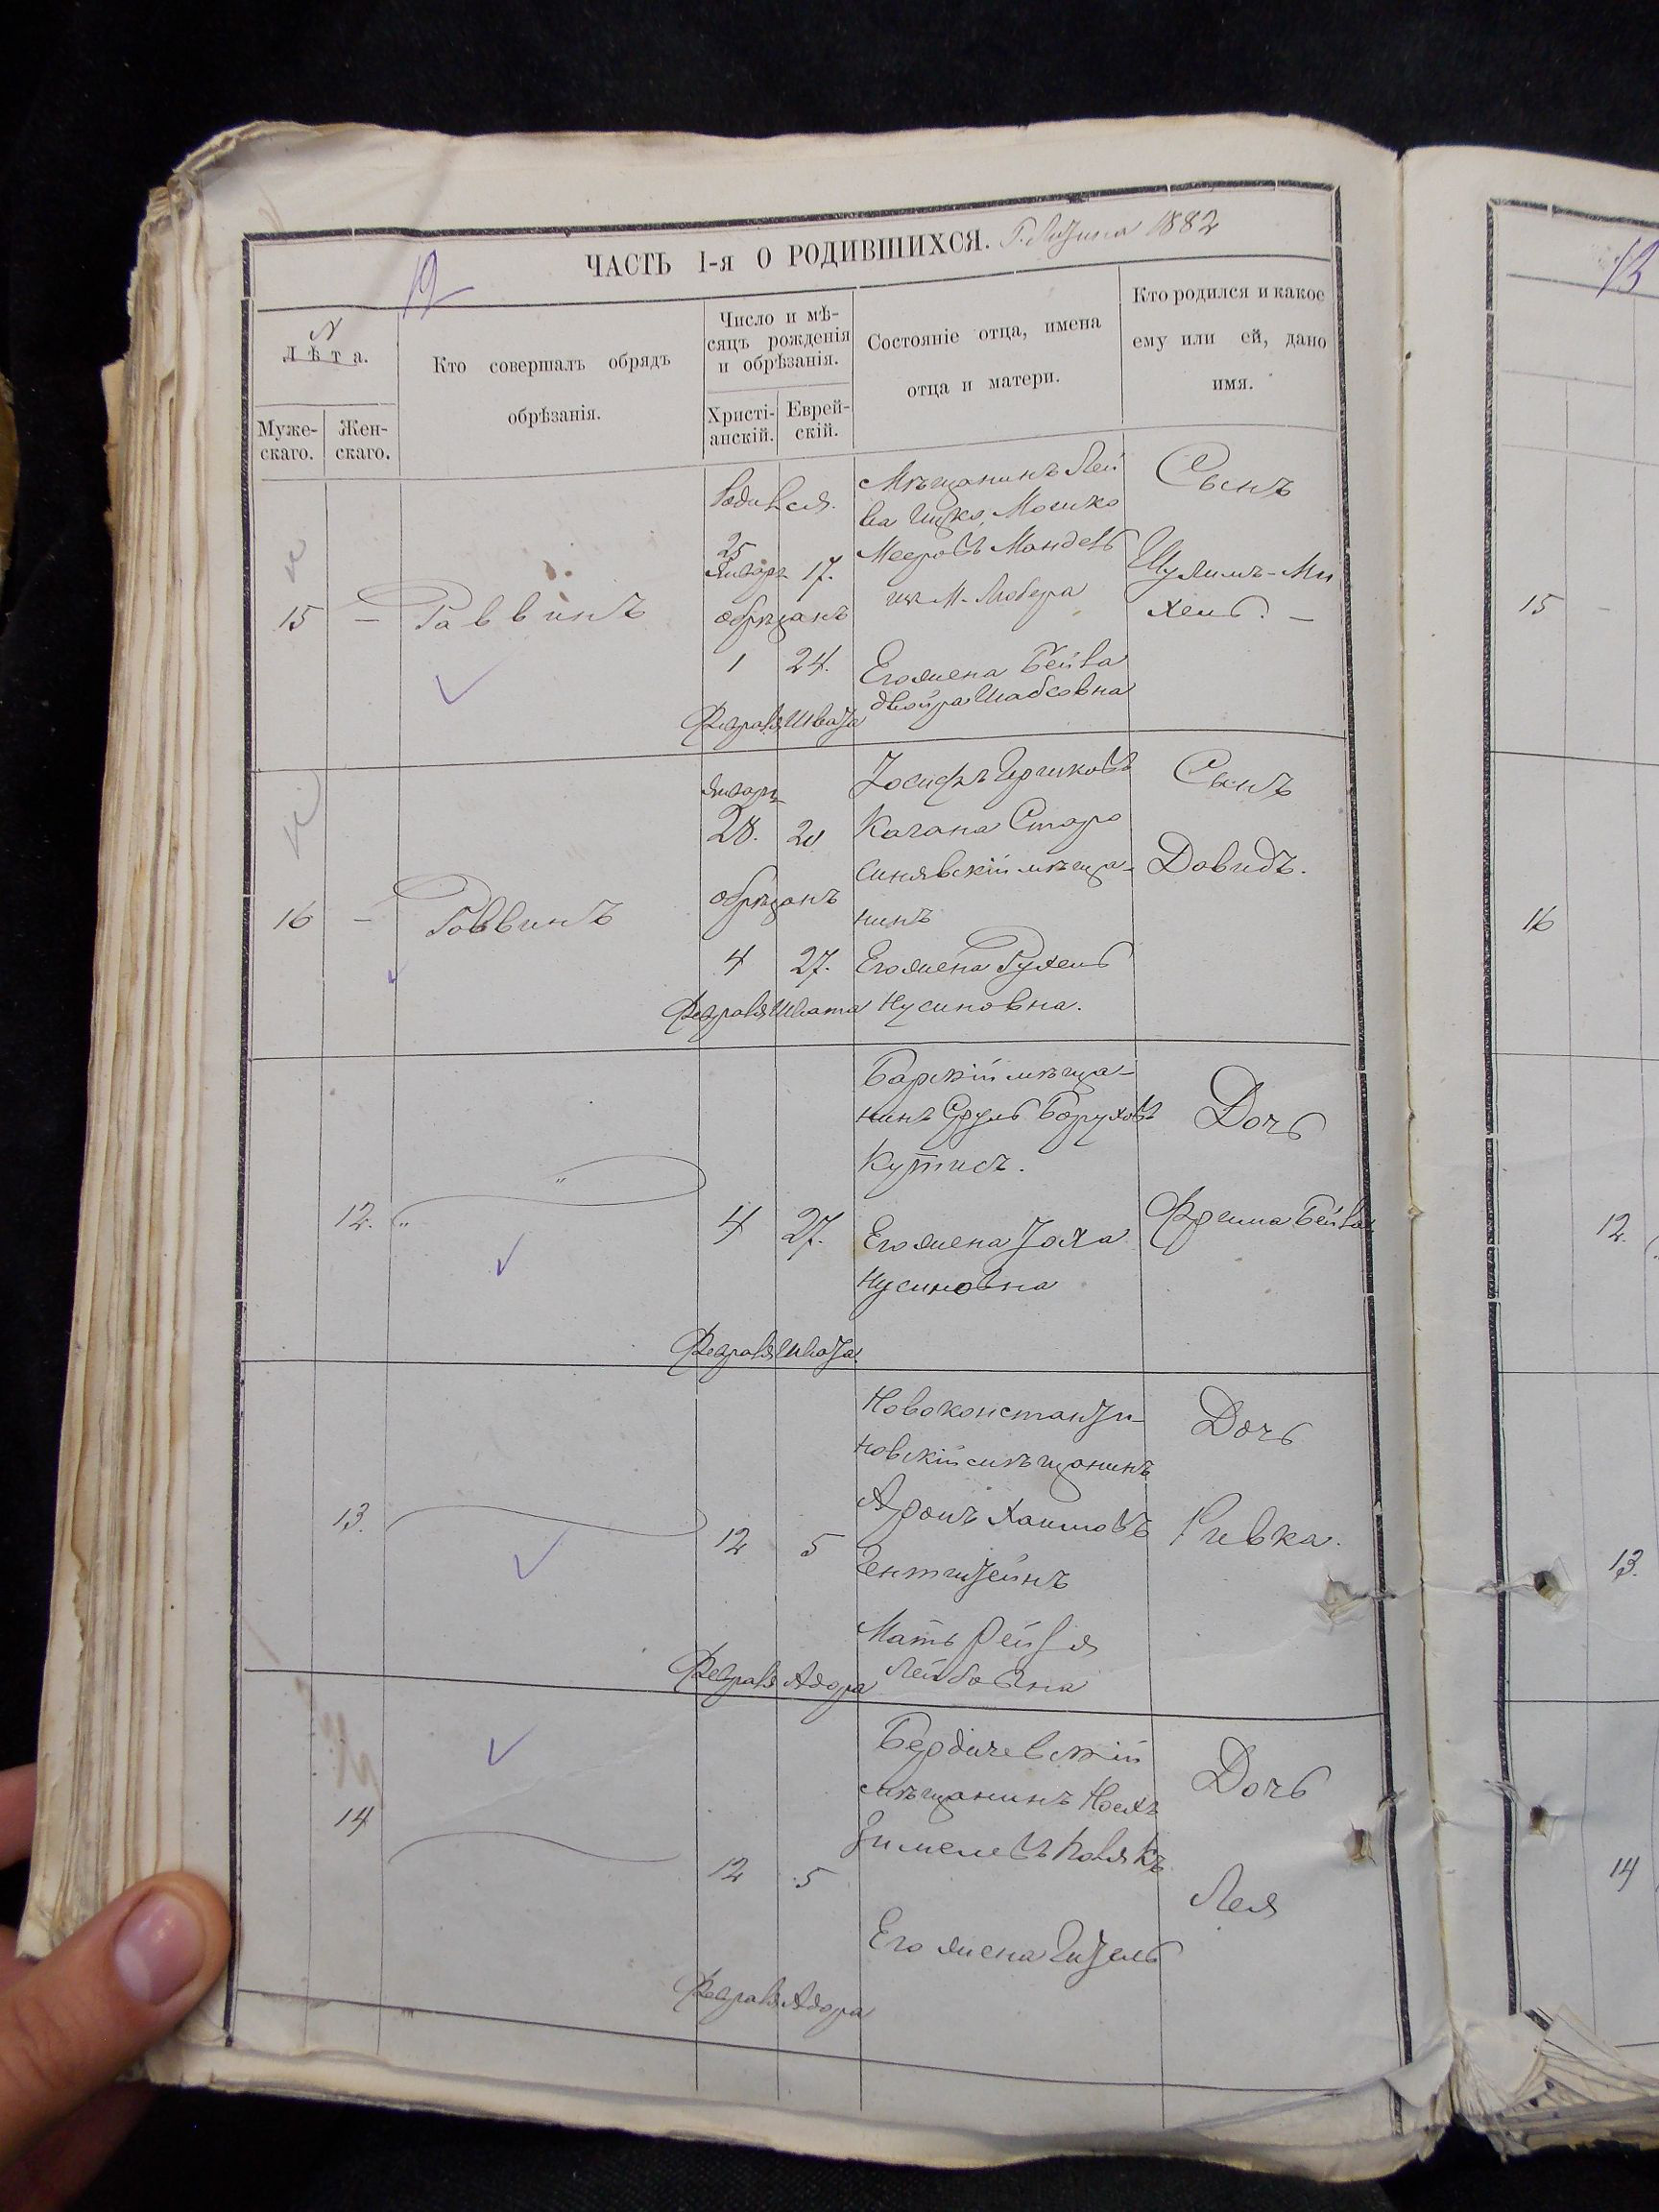 ЧАСТЬ I-я О РОДИВШИХСЯ. 1882
12
N
Лѣта.
Муже-
скаго.
Жен-
скаго.
Кто совершалъ обрядъ
обрѣзанія.
Число и мѣ-
сяцъ рожденія
и обрѣзанія.
Христі-
анскій.
Еврей-
скій.
Состояніе отца, имена
отца и матери.
Кто родился и какое
ему или ей, дано
имя.
15
—
Раввинъ
родился.
25
Январь 17.
обрѣзанъ
1 24.
Февраля Швата
Мѣщанинъ Лей
ба Ицко, Мошко
Мееровъ Мандель
Его жена Бейла
Двойра Шабсовна
Сынъ
Шулимъ-Ми
хель. —
16
—
Раввинъ
Январь
28. 20
обрѣзанъ
4 27.
Февраля Швата
Іосифъ Гершковъ
Кагана Старо
синявскій мѣща-
нинъ
Его жена Рухель
Нусиновна.
Сынъ
Довидъ.
12.
4 27.
Февраля Швата
Барскій мѣща-
нинъ Сруль Боруховъ
Его жена
Нусиновна
Дочь
Фрима Бейла
13.
12 5
Февраля Адора
Новоконстанти-
новскій мѣщанинъ
Аронъ Хаимовъ
Мать Рейзя
Лейбовна
Дочь
Ривка.
14
12 5
Февраля Адора
Бердичевскій
мѣщанинъ
Зимелевъ Полякъ
Его жена Гитель
Дочь
Лея
13
15
—
16
12.
13.
14